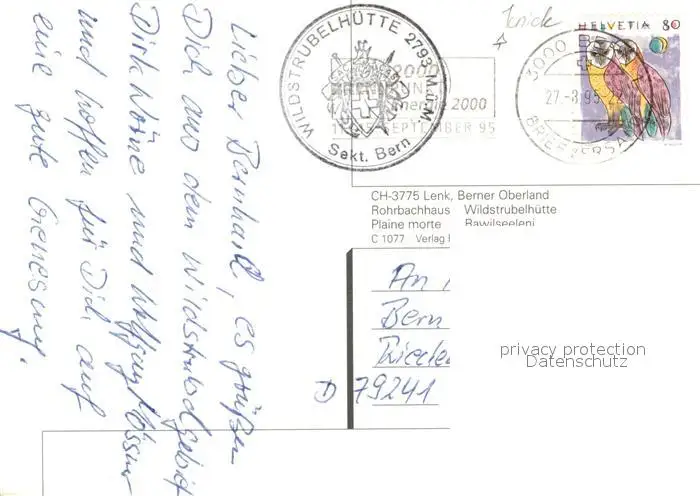 Lieber Bernhard, es grüßen
Dich aus dem Wildstrubelgebiet
Dirk Höhne und Wolfgang
und hoffen für Dich auf
eine gute Genesung.
WILDSTRUBELHÜTTE 2793 M.ü.M.
Sekt. Bern
2000
Energie 2000
SEPTEMBER 95
HELVETIA 80
3000 BERN
27.-8.95
BRIEFVERSAND
CH-3775 Lenk, Berner Oberland
Rohrbachhaus Wildstrubelhütte
Plaine morte Rawilseeleni
C 1077 Verlag
An
Bern
Riede
D 79241
privacy protection
Datenschutz